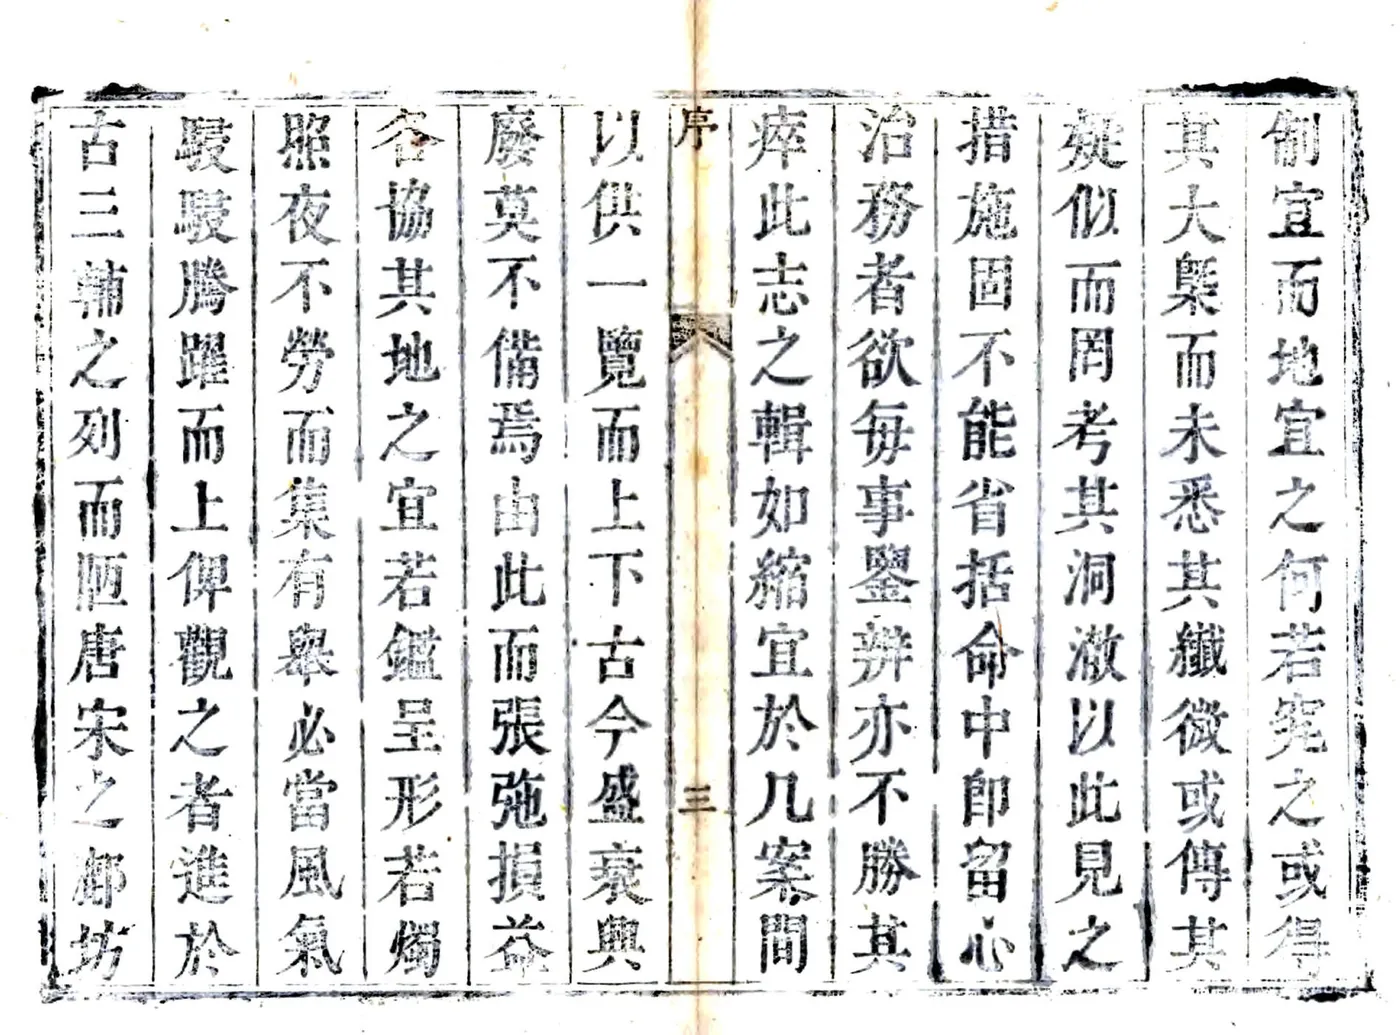 制宜而地宜之何若究之或得
其大槩而未悉其纖微或傳其
疑似而罔考其洞澈以此見之
措施固不能省括命中即留心
治務者欲每事鑒辨亦不勝其
瘁此志之輯如縮宜於几案間
序
三
以供一覽而上下古今盛衰興
廢莫不備焉由此而張弛損益
各協其地之宜若鑑呈形若燭
照夜不勞而集有舉必當風氣
駸駸騰躍而上俾觀之者進於
古三輔之列而陋唐宋之鄜坊